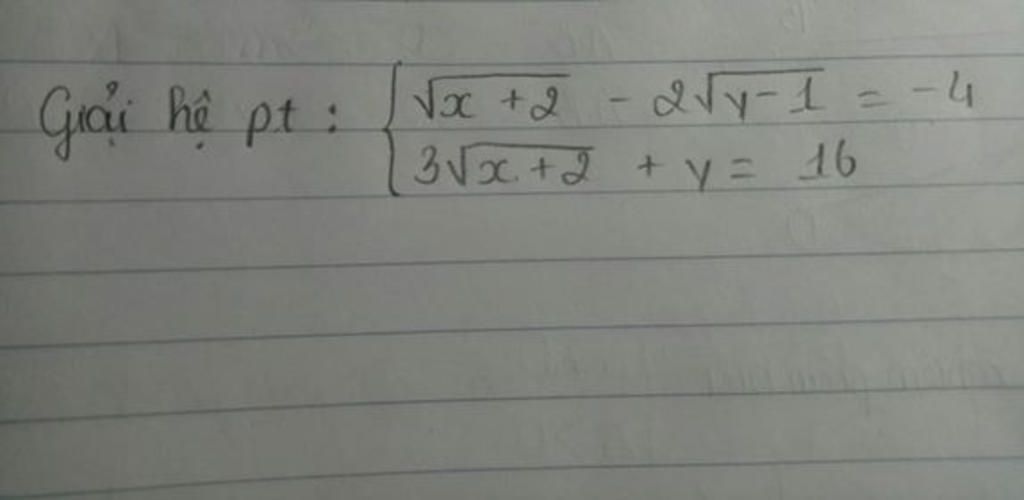 Giải hệ pt : { √(x + 2) - 2√(y - 1) = -4
3√(x + 2) + y = 16